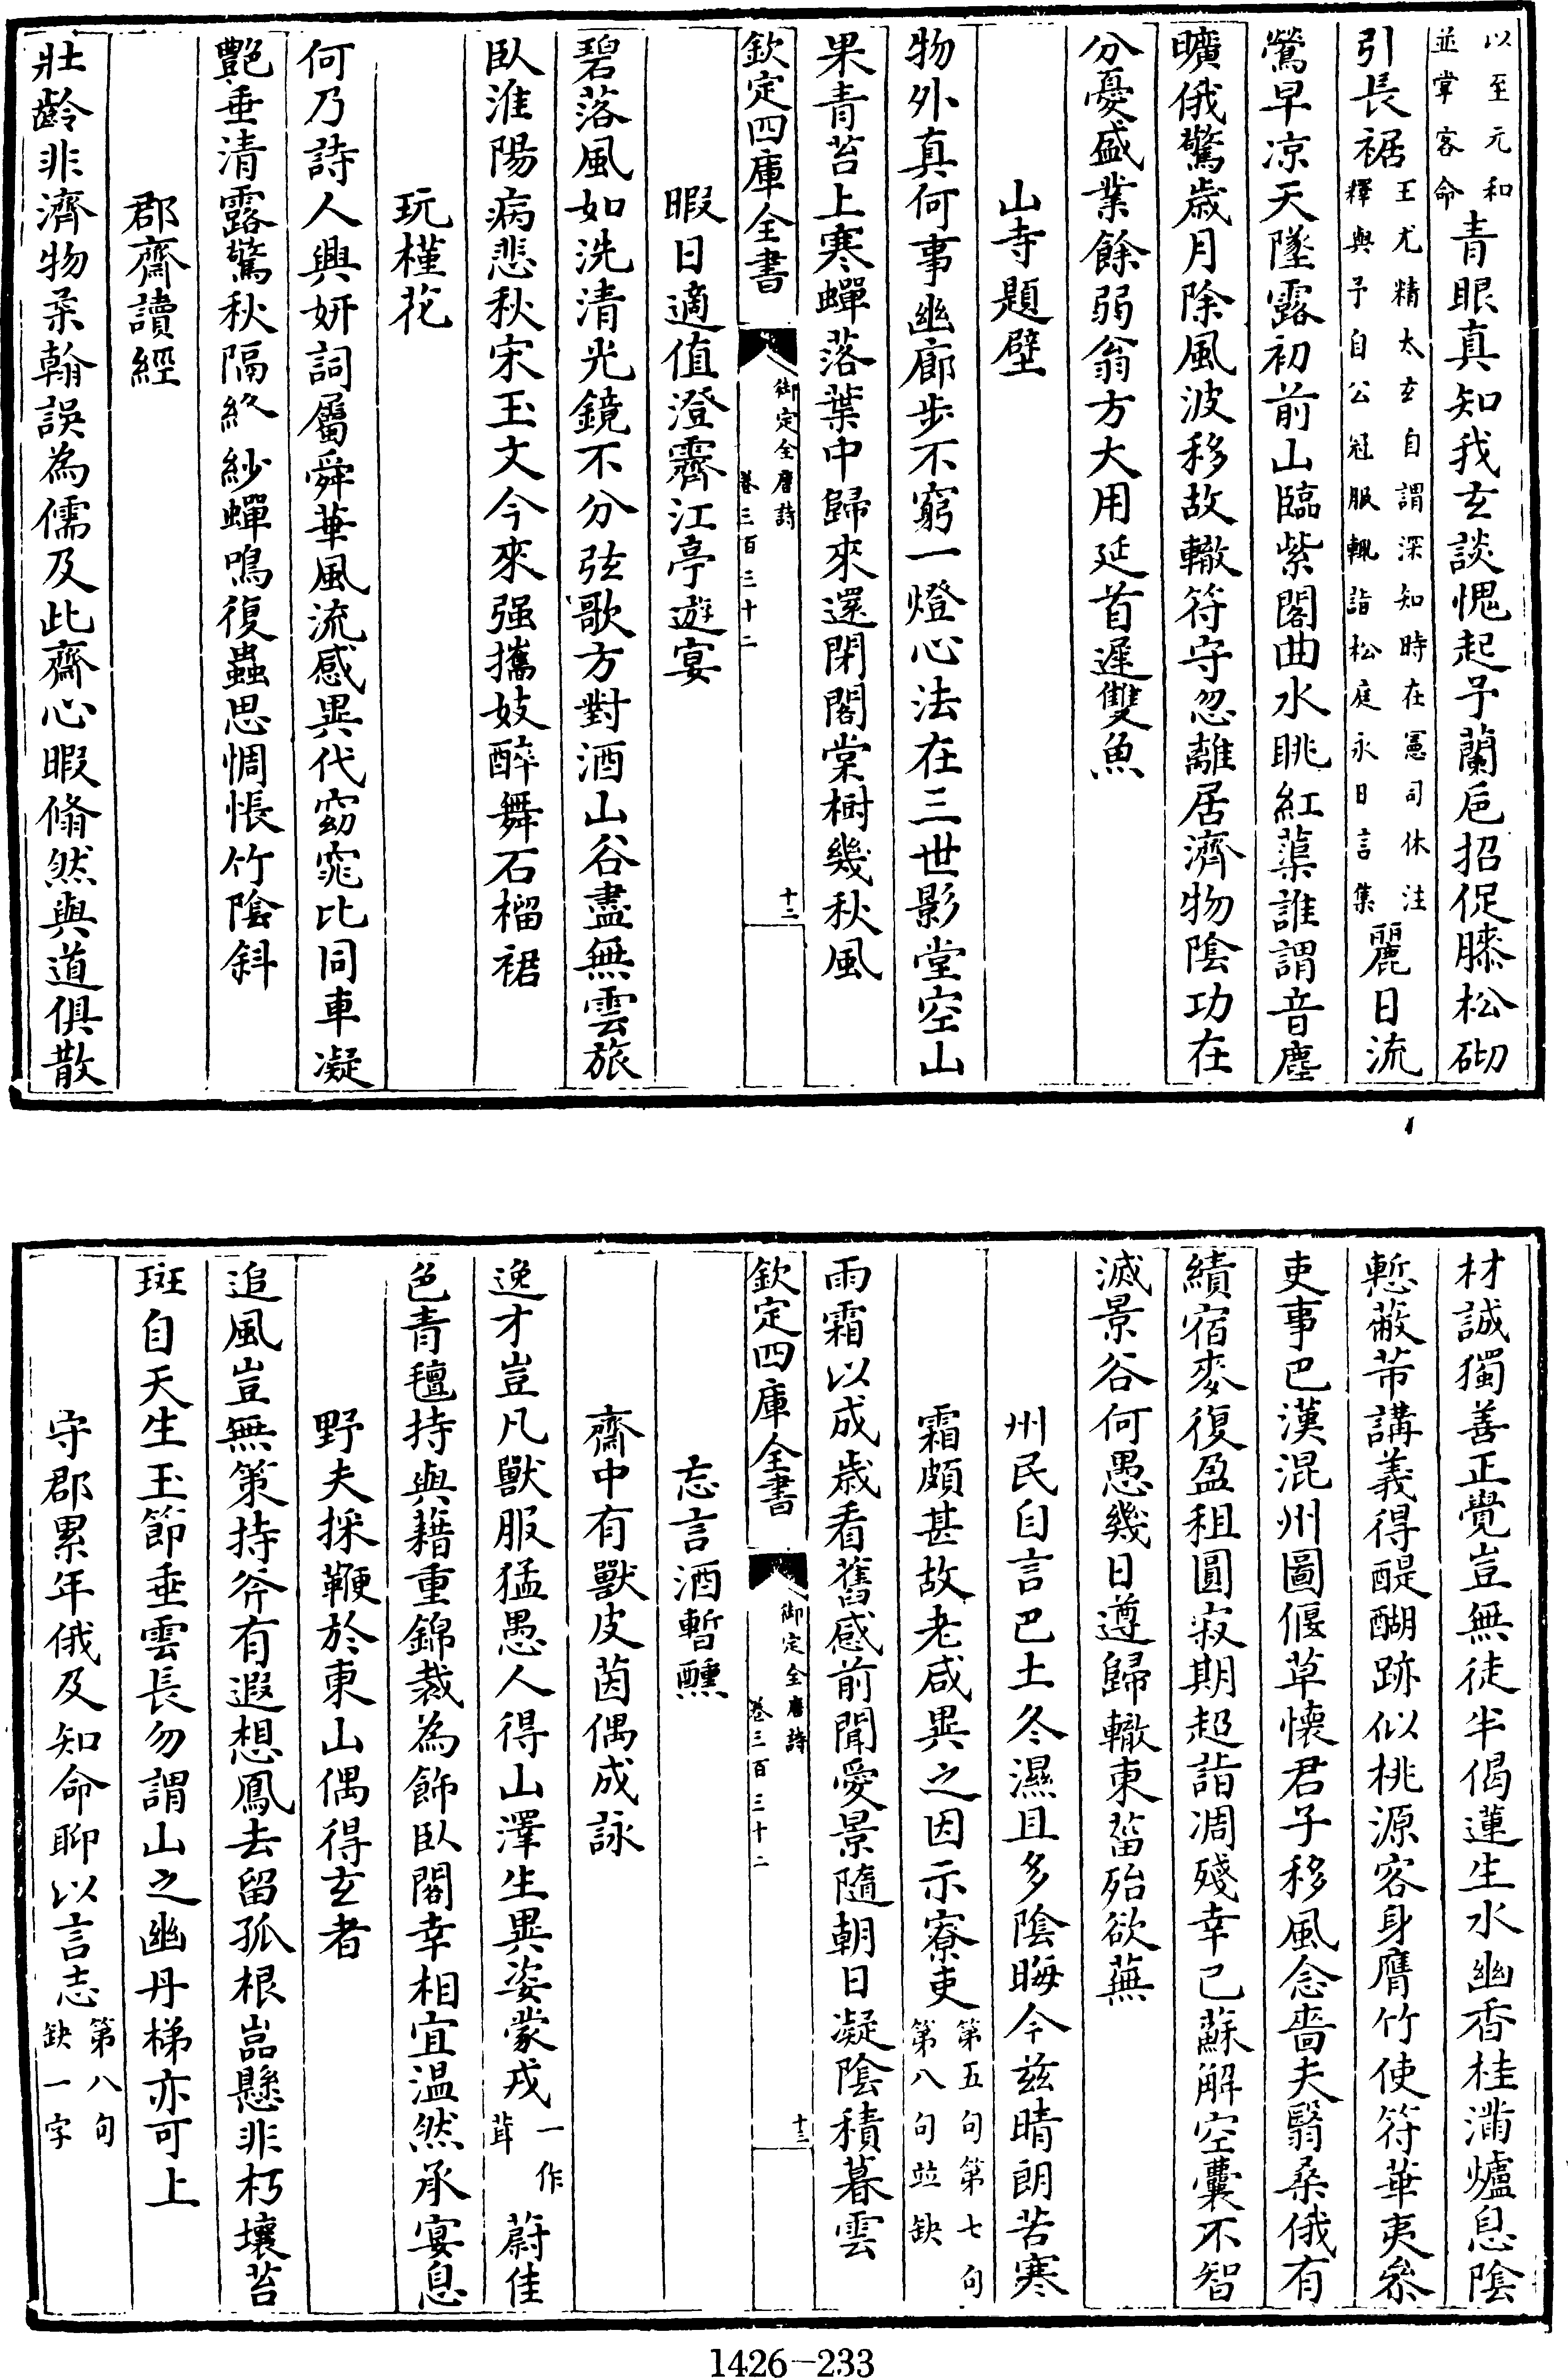 以至元和並掌客命青眼真知我玄談愧起予蘭卮招促膝松砌
引長裾王尤精太玄自謂深知時在憲司休注釋與予自公冠服輒詣松庭永日言集麗日流
鶯早凉天墜露初前山臨紫閣曲水眺紅蕖誰謂音塵
曠俄驚歲月除風波移故轍符守忽離居濟物陰功在
分憂盛業餘弱翁方大用延首遲雙魚
山寺題壁
物外真何事幽廊步不窮一燈心法在三世影堂空山
果青苔上寒蟬落葉中歸來還閉閣棠樹幾秋風
欽定四庫全書
御定全唐詩
卷三百三十二
十二
暇日適值澄霽江亭遊宴
碧落風如洗清光鏡不分弦歌方對酒山谷盡無雲旅
臥淮陽病悲秋宋玉文今來强攜妓醉舞石榴裙
玩槿花
何乃詩人興妍詞屬舜華風流感異代窈窕比同車凝
艷垂清露驚秋隔絳紗蟬鳴復蟲思惆悵竹陰斜
郡齋讀經
壯齡非濟物柔翰誤為儒及此齋心暇翛然與道俱散
材誠獨善正覺豈無徒半偈蓮生水幽香桂滿爐息陰
慙蔽芾講義得醍醐跡似桃源客身膺竹使符華夷叅
吏事巴漢混州圖偃草懷君子移風念嗇夫翳桑俄有
績宿麥復盈租圓寂期超詣凋殘幸已蘇解空囊不智
滅景谷何愚幾日遵歸轍東菑殆欲蕪
州民自言巴土冬濕且多陰晦今茲晴朗苦寒
霜頗甚故老咸異之因示寮吏第五句第七句第八句並缺
雨霜以成歲看舊感前聞愛景隨朝日凝陰積暮雲
欽定四庫全書
御定全唐詩
卷三百三十二
十三
忘言酒暫醺
齋中有獸皮茵偶成詠
逸才豈凡獸服猛愚人得山澤生異姿蒙戎一作茸蔚佳
色青氊持與藉重錦裁為飾臥閣幸相宜温然承宴息
野夫採鞭於東山偶得玄者
追風豈無策持斧有遐想鳳去留孤根嵓懸非朽壤苔
斑自天生玉節垂雲長勿謂山之幽丹梯亦可上
守郡累年俄及知命聊以言志第八句缺一字
1426-233